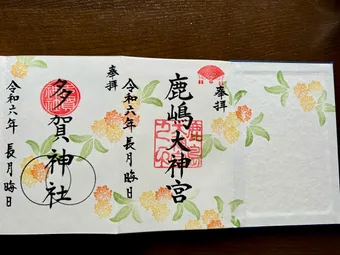 奉拝
鹿嶋大神宮
令和六年 長月晦日
奉拝
多賀神社
令和六年 長月晦日